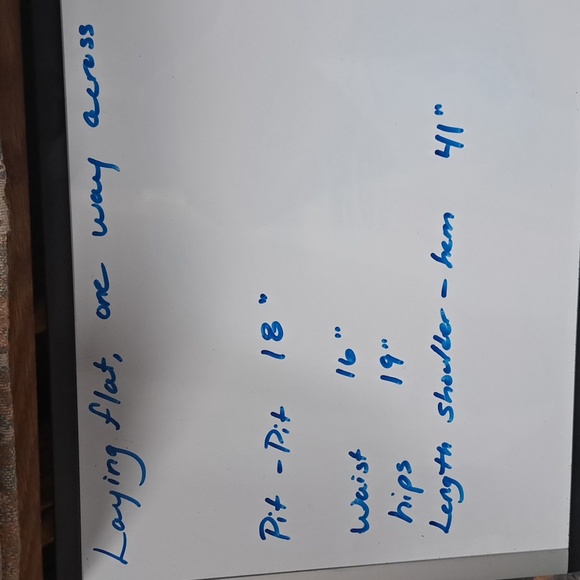 Laying flat, one way across
Pit - Pit 18"
Waist 16"
hips 19"
Length shoulder - hem 41"